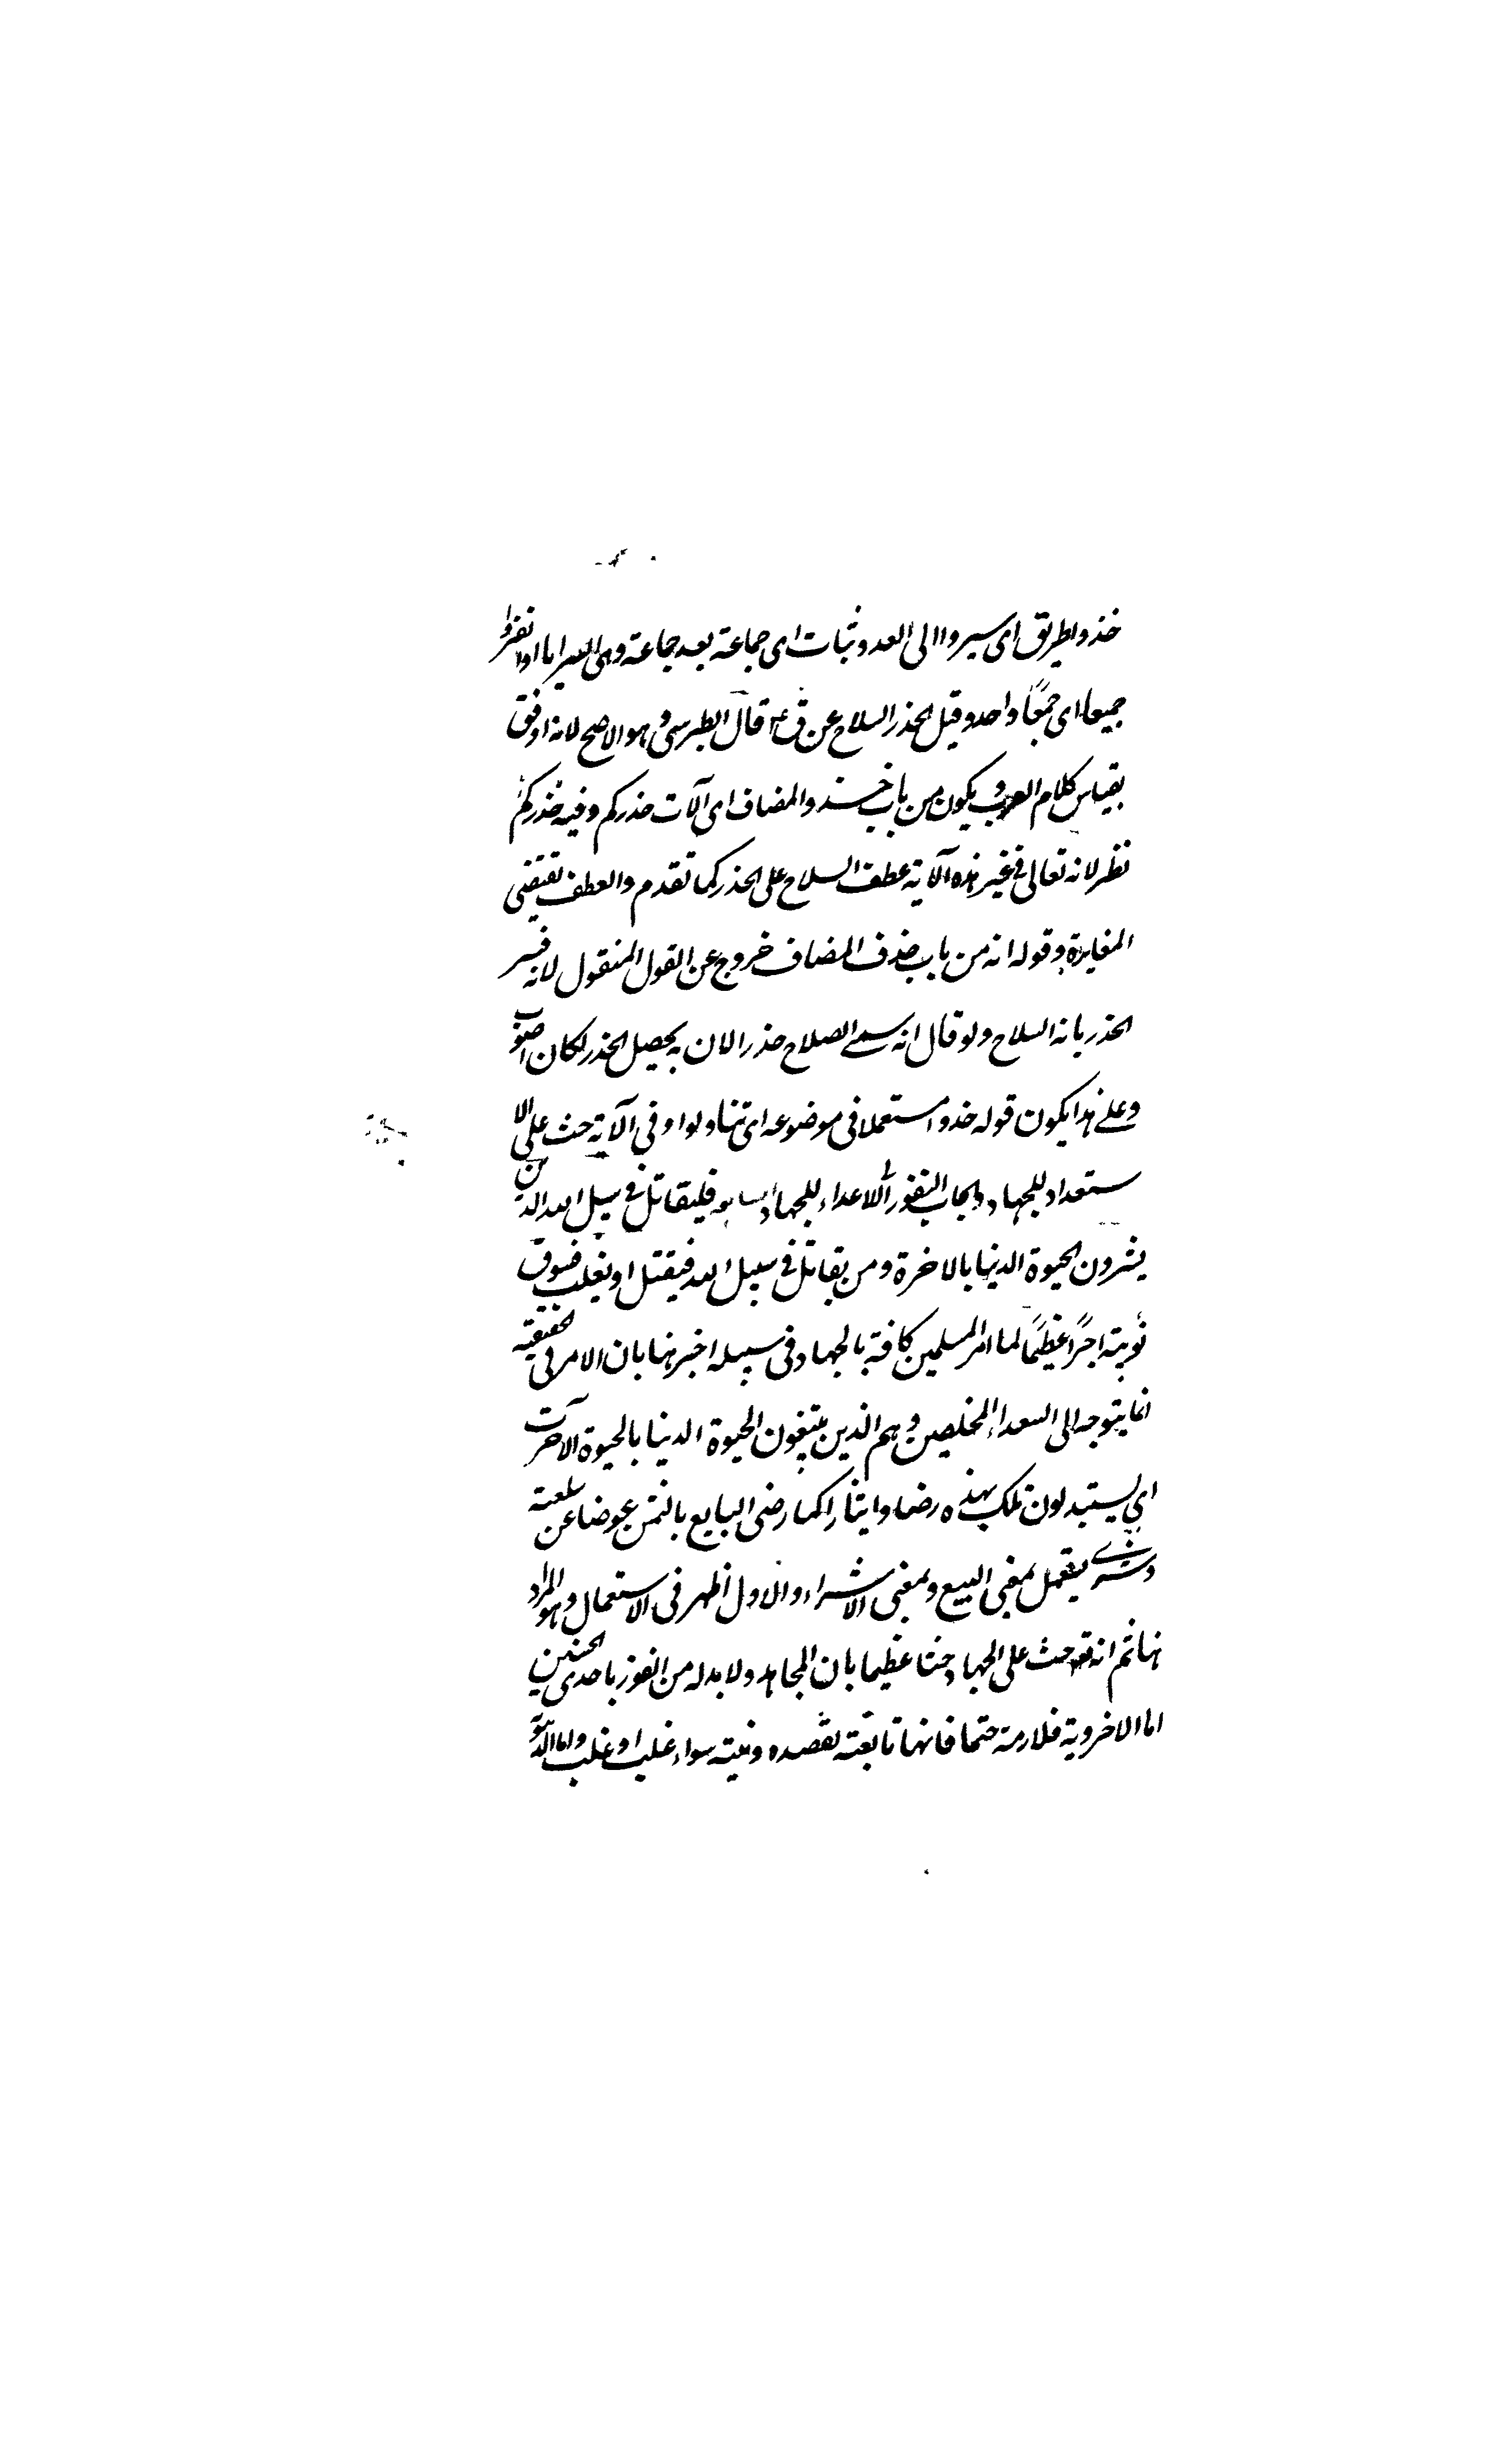 خذوا طريق اى سيروا الى العدو ثبات اى جماعة بعد جماعة وهى السرايا او انفروا
جميعا اى جمعًا واحد وقيل الحذر السلاح عن ق ع قال الطبرسى وهو الاصح لانه اوفق
بقياس كلام العرب ويكون من باب حذف المضاف اى آلات حذركم وفيه حذركم
نظر لانه تعالى فى غير هذه الآية عطف السلاح على الحذر كما تقدم والعطف يقتضى
المغايرة وقوله انه من باب حذف المضاف خروج عن القول المنقول لانه فسر
الحذر بانه السلاح ولو قال انه سمى الصلاح حذرا لان به يحصل الحذر لكان اصوب
وعلى هذا يكون قوله خذوا مستعملا فى موضوعه اى تناولوا وفى الآية حث على الا
ستعداد للجهاد وايجاب النفور الى الاعداء للجهاد فليقاتل فى سبيل الله الذين
يشرون الحيوة الدنيا بالاخرة ومن يقاتل فى سبيل الله فيقتل او يغلب فسوف
نؤيته اجرًا عظيمًا لما امر المسلمين كافة بالجهاد فى سبيله اخبر هنا بان الامر فى الحقيقة
انما يتوجه الى السعداء المخلصين وهم الذين يبتغون الحيوة الدنيا بالحيوة الآخرت
اى يستبدلون تلك بهذه رضا وايثارا كما رضى البايع بالثمن عوضا عن سلعته
وشرى يستعمل بمعنى البيع وبمعنى الاشراء والاول اظهر فى الاستعمال وهو المراد
هنا ثم انه تعه حث على الجهاد حثا عظيما بان المجاهد ولا بد له من الفوز باحدى الحسنيين
اما الاخروية فلازمة حتما فانها تابعة لقصده ونيته سواء غلب او غلب واما الدنيوية